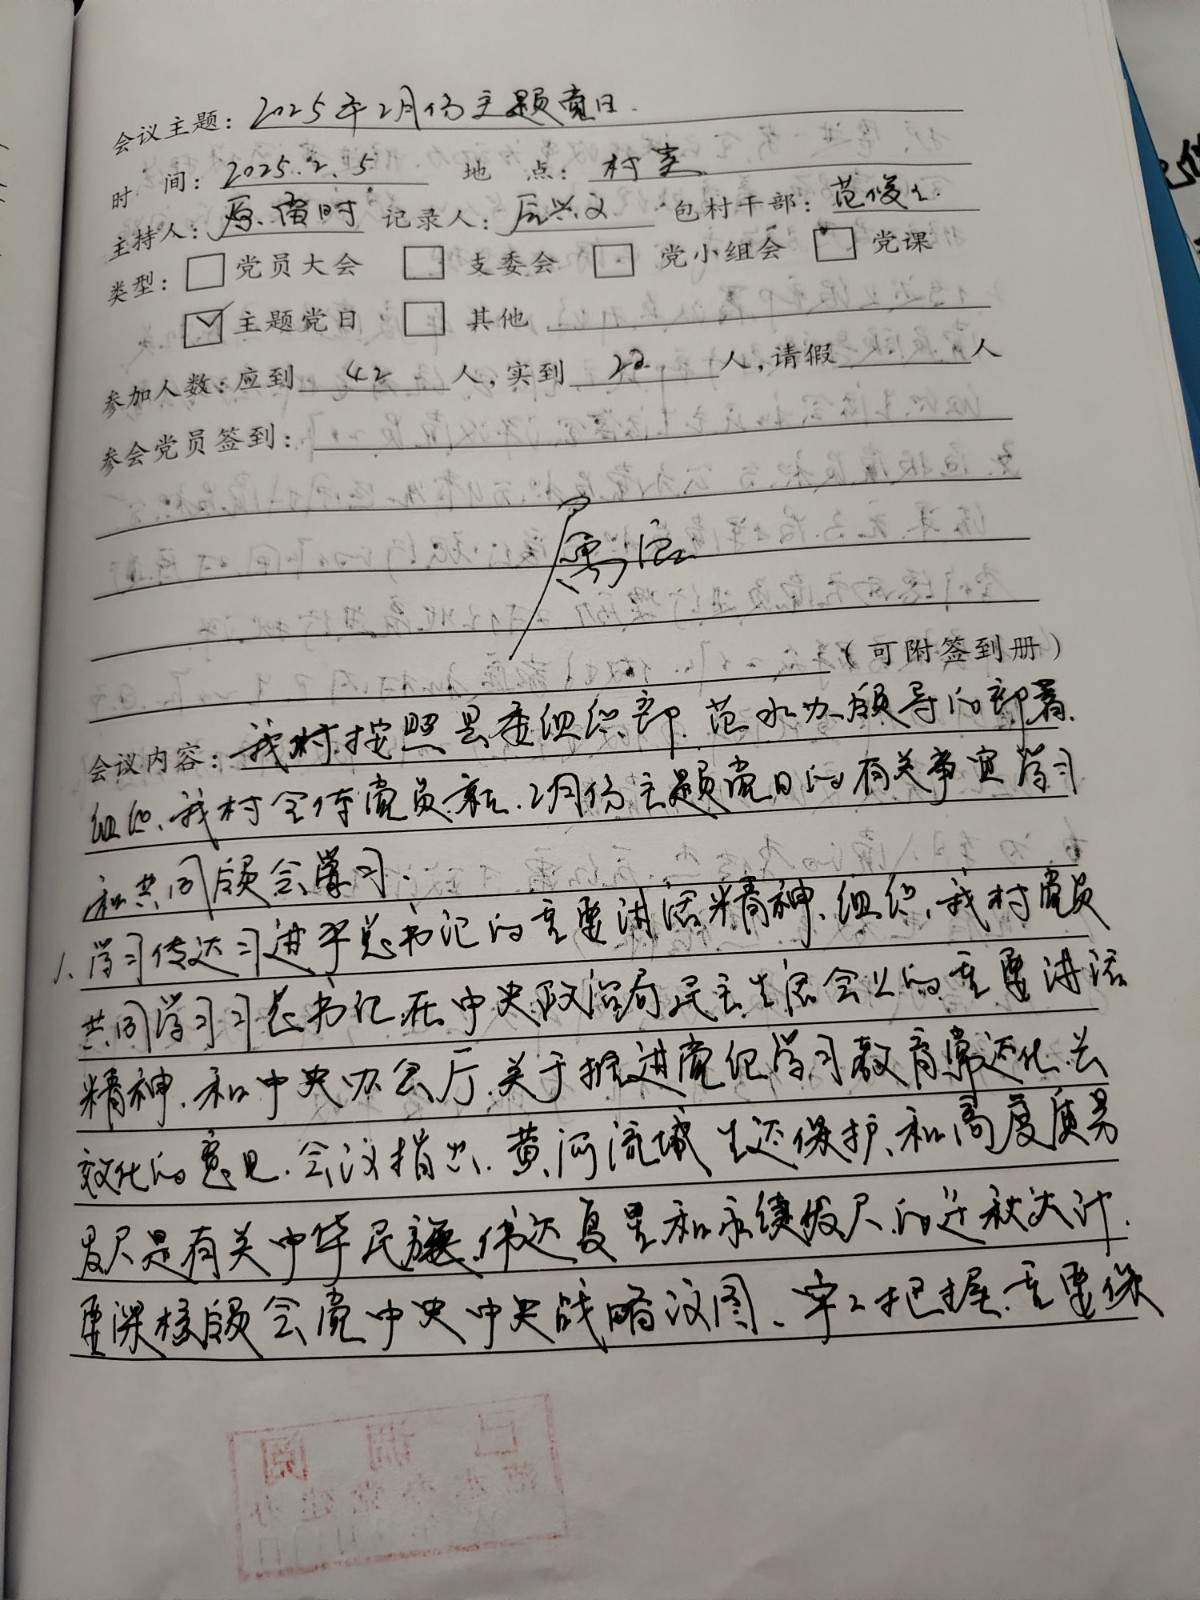 会议主题：2025年2月份主题党日.
时 间：2025.2.5 地 点：村室
主持人： 记录人： 包村干部：范俊
类型：□ 党员大会 □ 支委会 □ 党小组会 □ 党课
☑ 主题党日 □ 其他
参加人数：应到 42 人，实到 22 人，请假 人
参会党员签到：
（可附签到册）
会议内容：我村按照县委组织部、范水办领导的部署、
组织、我村全体党员、2月份主题党日的有关事宜学习
和共同领会学习.
1、学习传达习近平总书记的重要讲话精神、组织、我村党员
共同学习习总书记、在中央政治局民主生活会上的重要讲话
精神、和中央办公厅、关于推进党纪学习教育常态化长
效化的意见、会议指出、黄河流域生态保护、和高度质量
发展是有关中华民族伟大复兴和永续发展的千秋大计.
要深核领会党中央中央战略议图、牢牢把握、重要保
已 调 阅